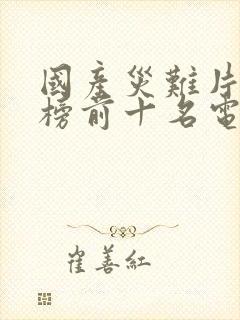 國產災難片
榜前十名電
崔善紅